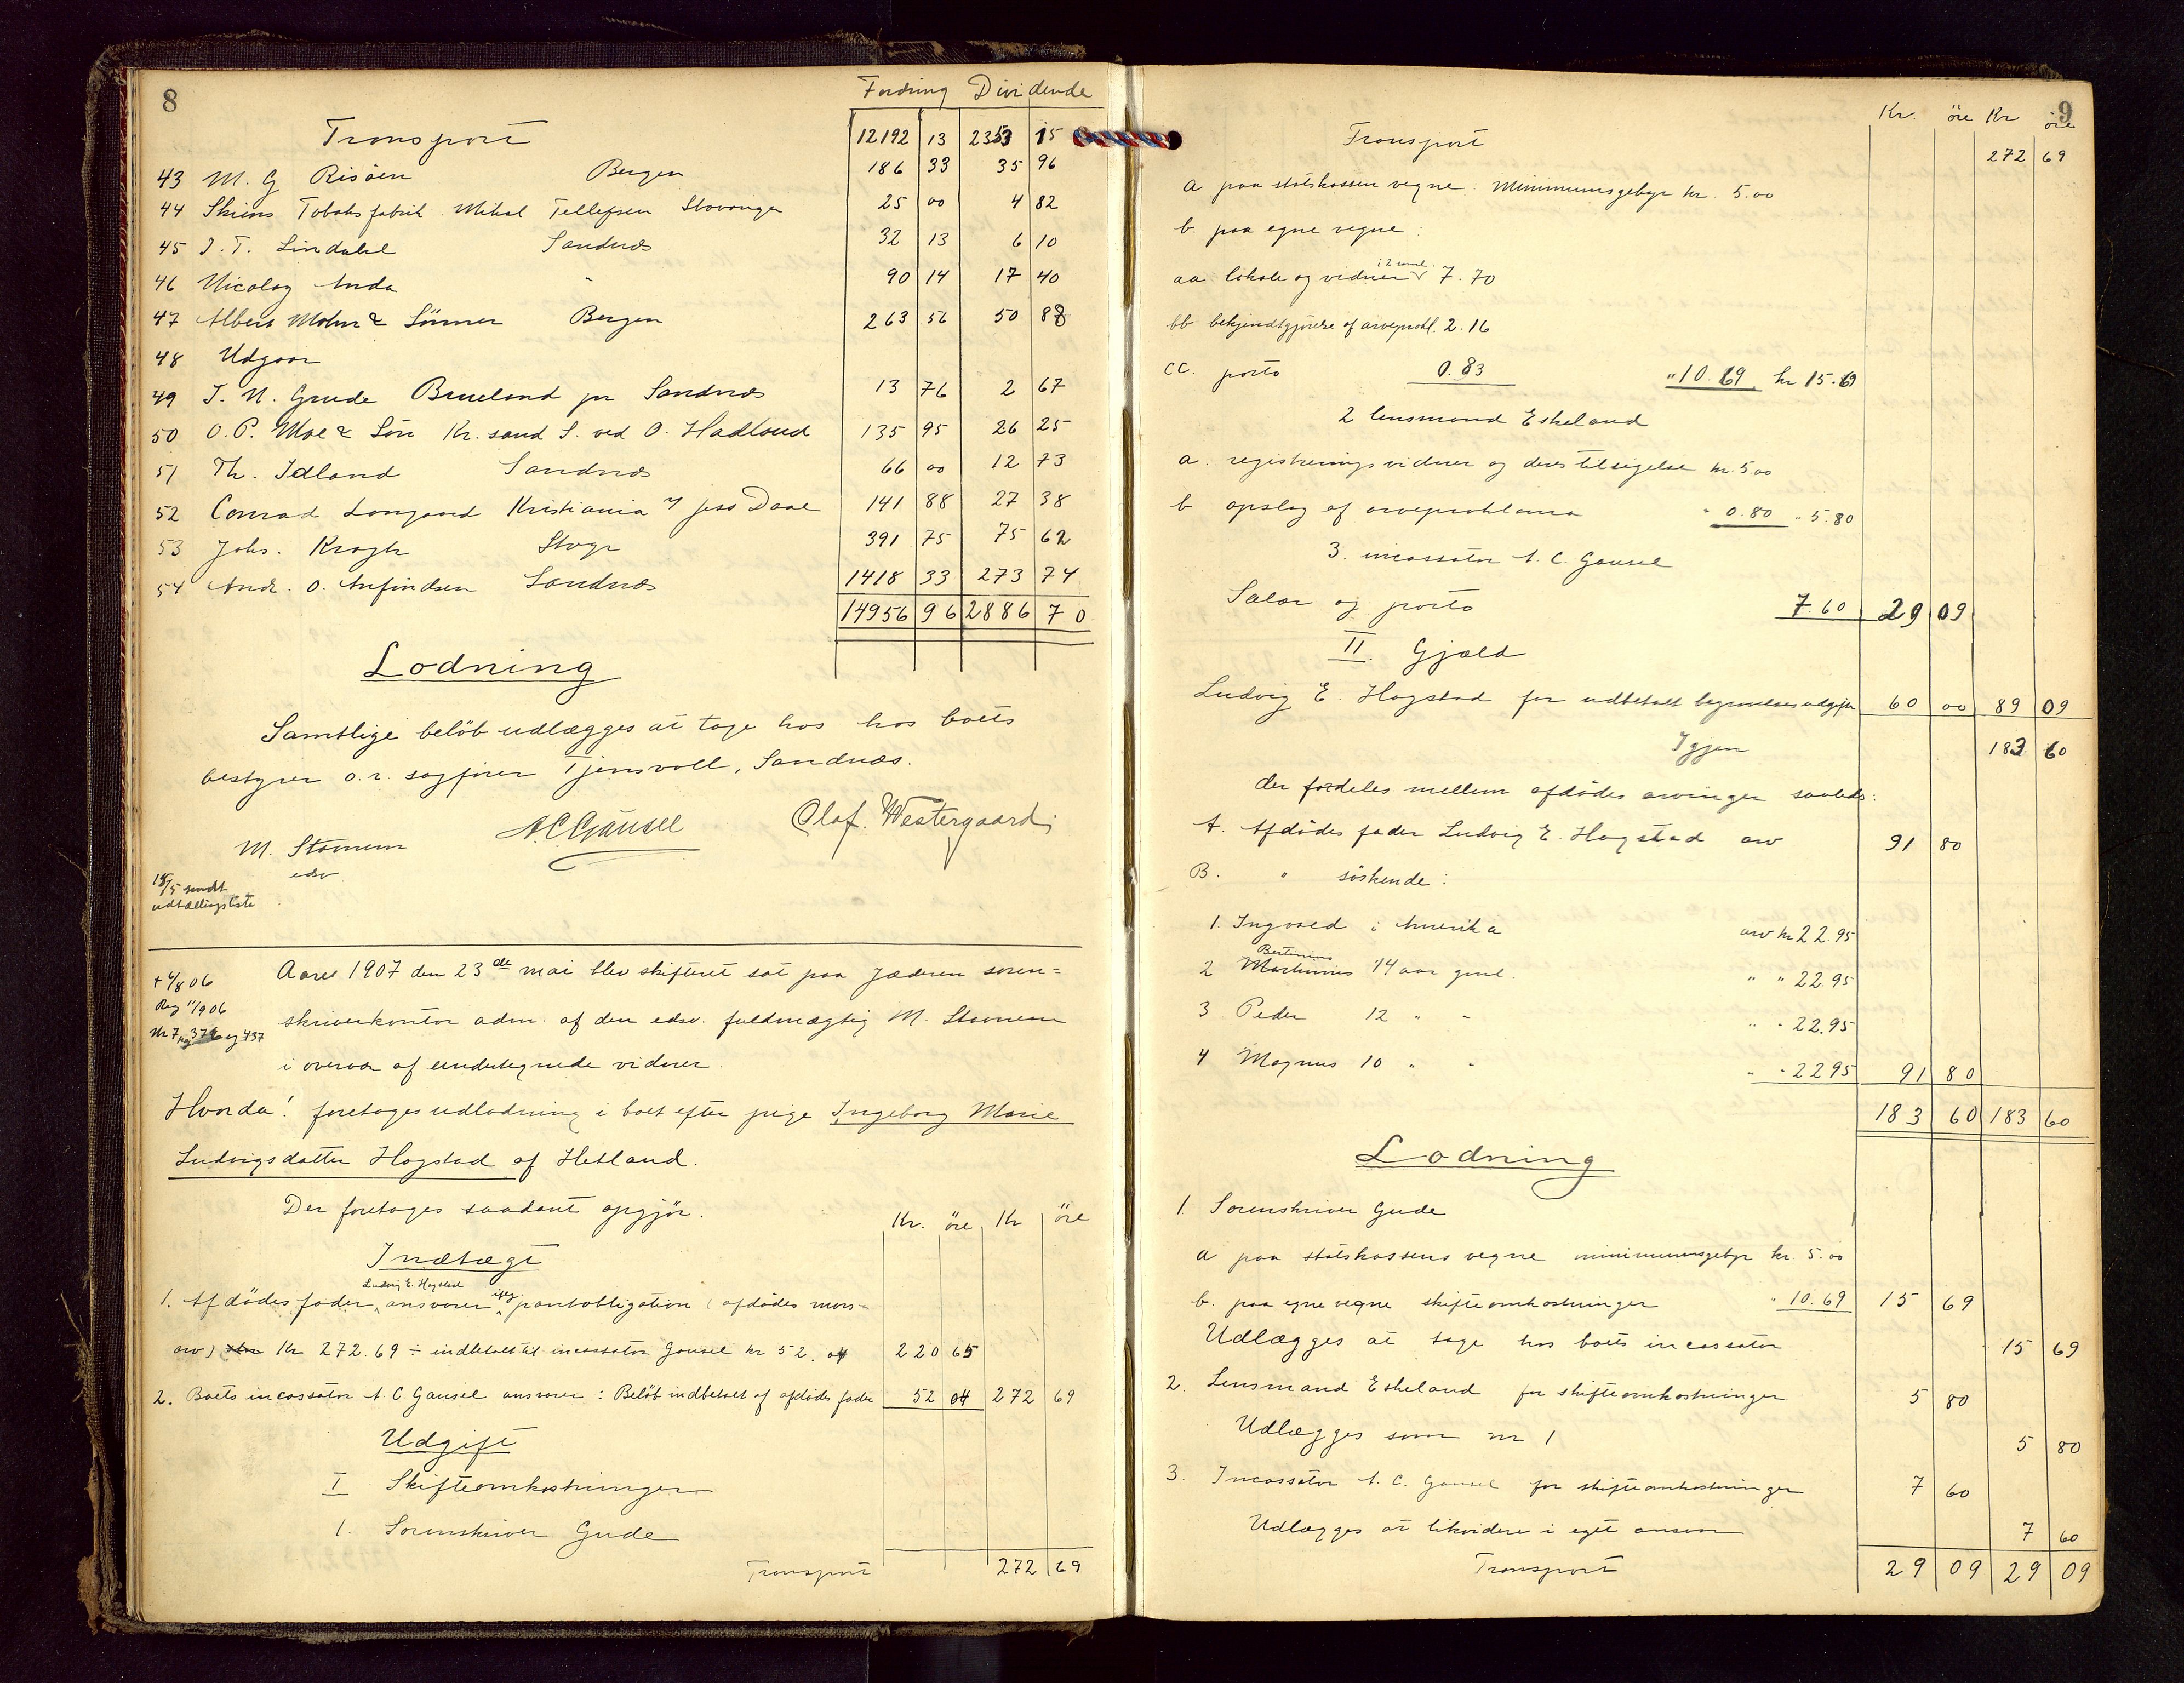 8
Fordring Dividende
Transport 12192 13 2353 15
43 M. G Risöen Bergen 186 33 35 96
44 Skiens Tobaksfabrik Mikal Tellefsen Stavanger 25 00 4 82
45 J. T. Lindahl Sandnæs 32 13 6 10
46 Nicolay Anda " 90 14 17 40
47 Albert Mohn & Sönner Bergen 263 56 50 88
48 Udgaar
49 T. N. Grude Brueland pr Sandnæs 13 76 2 67
50 O. P. Moe & Sön Kr. sand S. ved O. Hadland 135 95 26 25
51 Th. Idland Sandnæs 66 00 12 73
52 Conrad Langaard Kristiania v/ Jess Daae 141 88 27 38
53 Johs. Krogh Stvgr 391 75 75 62
54 Andr. O. Anfindsen Sandnæs 1418 33 273 74
14956 96 2886 70
Lodning
Samtlige belöb udlægges at tage hos hos boets
bestyrer o.r. sagförer Tjensvoll, Sandnæs.
M. Stornem A.C. Gausel Olaf. Westergaard
edsv.
15/5 sendt
udtællingsliste
+ 4/8 06
Reg 11/9 06
Nr 7 pag 376 og 437
Aaret 1907 den 23de mai blev skifteret sat paa Jæderen soren=
skriverkontor adm. af den edsv. fuldmægtig M. Stornem
i overvær af undertegnede vidner.
Hvorda! foretoges udlodning i boet efter pige Ingeborg Marie
Ludvigsdatter Hogstad af Hetland.
Der foretoges saadant opgjör.
Kr. öre Kr öre
Indtægt
Ludvig E. Hogstad
1. Afdödes fader, ansvarer iflg. pantobligation (afdödes mors=
arv) Kr 272.69 ÷ indbetalt til incassator Gausel kr 52.04 220 65
2. Boets incassator A. C. Gausel ansvarer: Belöb indbetalt af afdödes fader 52 04 272 69
Udgift
I Skifteomkostninger
1. Sorenskriver Gude
Transport 272 69
9
Kr. öre Kr öre
Transport 272 69
a paa statskassen vegne: Minimumsgebyr kr. 5.00
b. paa egne vegne:
aa lokale og vidner i 2 saml. 7.70
bb bekjendtgjörelse af arveprokl. 2.16
cc. porto 0.83 " 10.69 kr 15.69
2 lensmand Eskeland
a. registreringsvidner og deres tilsigelse kr. 5.00
b opslag af arveproklama " 0.80 " 5.80
3. incassator A. C. Gausel
Salær og porto 7.60 29 09
II. Gjæld
Ludvig E. Hogstad for udbetalt begravelsesudgifter 60 00 89 09
Igjen 183 60
der fordeles mellem afdödes arvinger saaledes:
A. Afdödes fader Ludvig E. Hogstad arv 91 80
B. " söskende:
1. Ingvald i Amerika arv kr 22.95
Bertinius
2 Martinius 14 aar gml. " " 22.95
3 Peder 12 " " " " 22.95
4 Magnus 10 " " " " 22 95 91 80
183 60 183 60
Lodning
1. Sorenskriver Gude
a paa statskassens vegne minimumsgebyr kr. 5.00
b. paa egne vegne skifteomkostninger " 10.69 15 69
Udlægges at tage hos boets incassator 15 69
2. Lensmand Eskeland for skifteomkostninger 5 80
Udlægges som nr 1 5 80
3. Incassator A. C. Gausel for skifteomkostninger 7 60
Udlægges at likvidere i eget ansvar 7 60
Transport 29 09 29 09